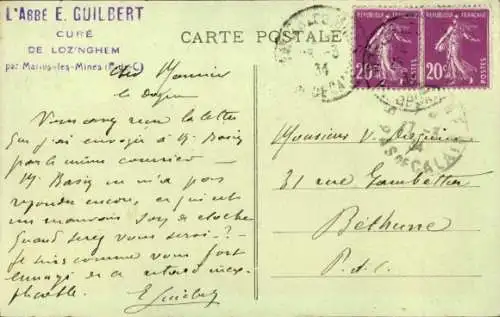 L'ABBÉ E. GUILBERT
CURÉ
DE LOZ'NGHEM
par Marles-les-Mines (P.-de-C.)
CARTE POSTALE
RÉPUBLIQUE FRANÇAISE
20c
20c
34
PAS DE CALAIS
Cher Monsieur
le doyen
Vous avez reçu la lettre
que j'ai envoyée à Mr Basiy
par le même courrier
Mr Basiy ne m'a pas
répondu encore, et qui est
un mauvais son de cloche
Quand serez vous servi ? -
Je suis comme vous fort
ennuyé de ce retard inex-
plicable.
E Guilbert
Monsieur V.
31 rue Gambetta
Béthune
P.d.C.